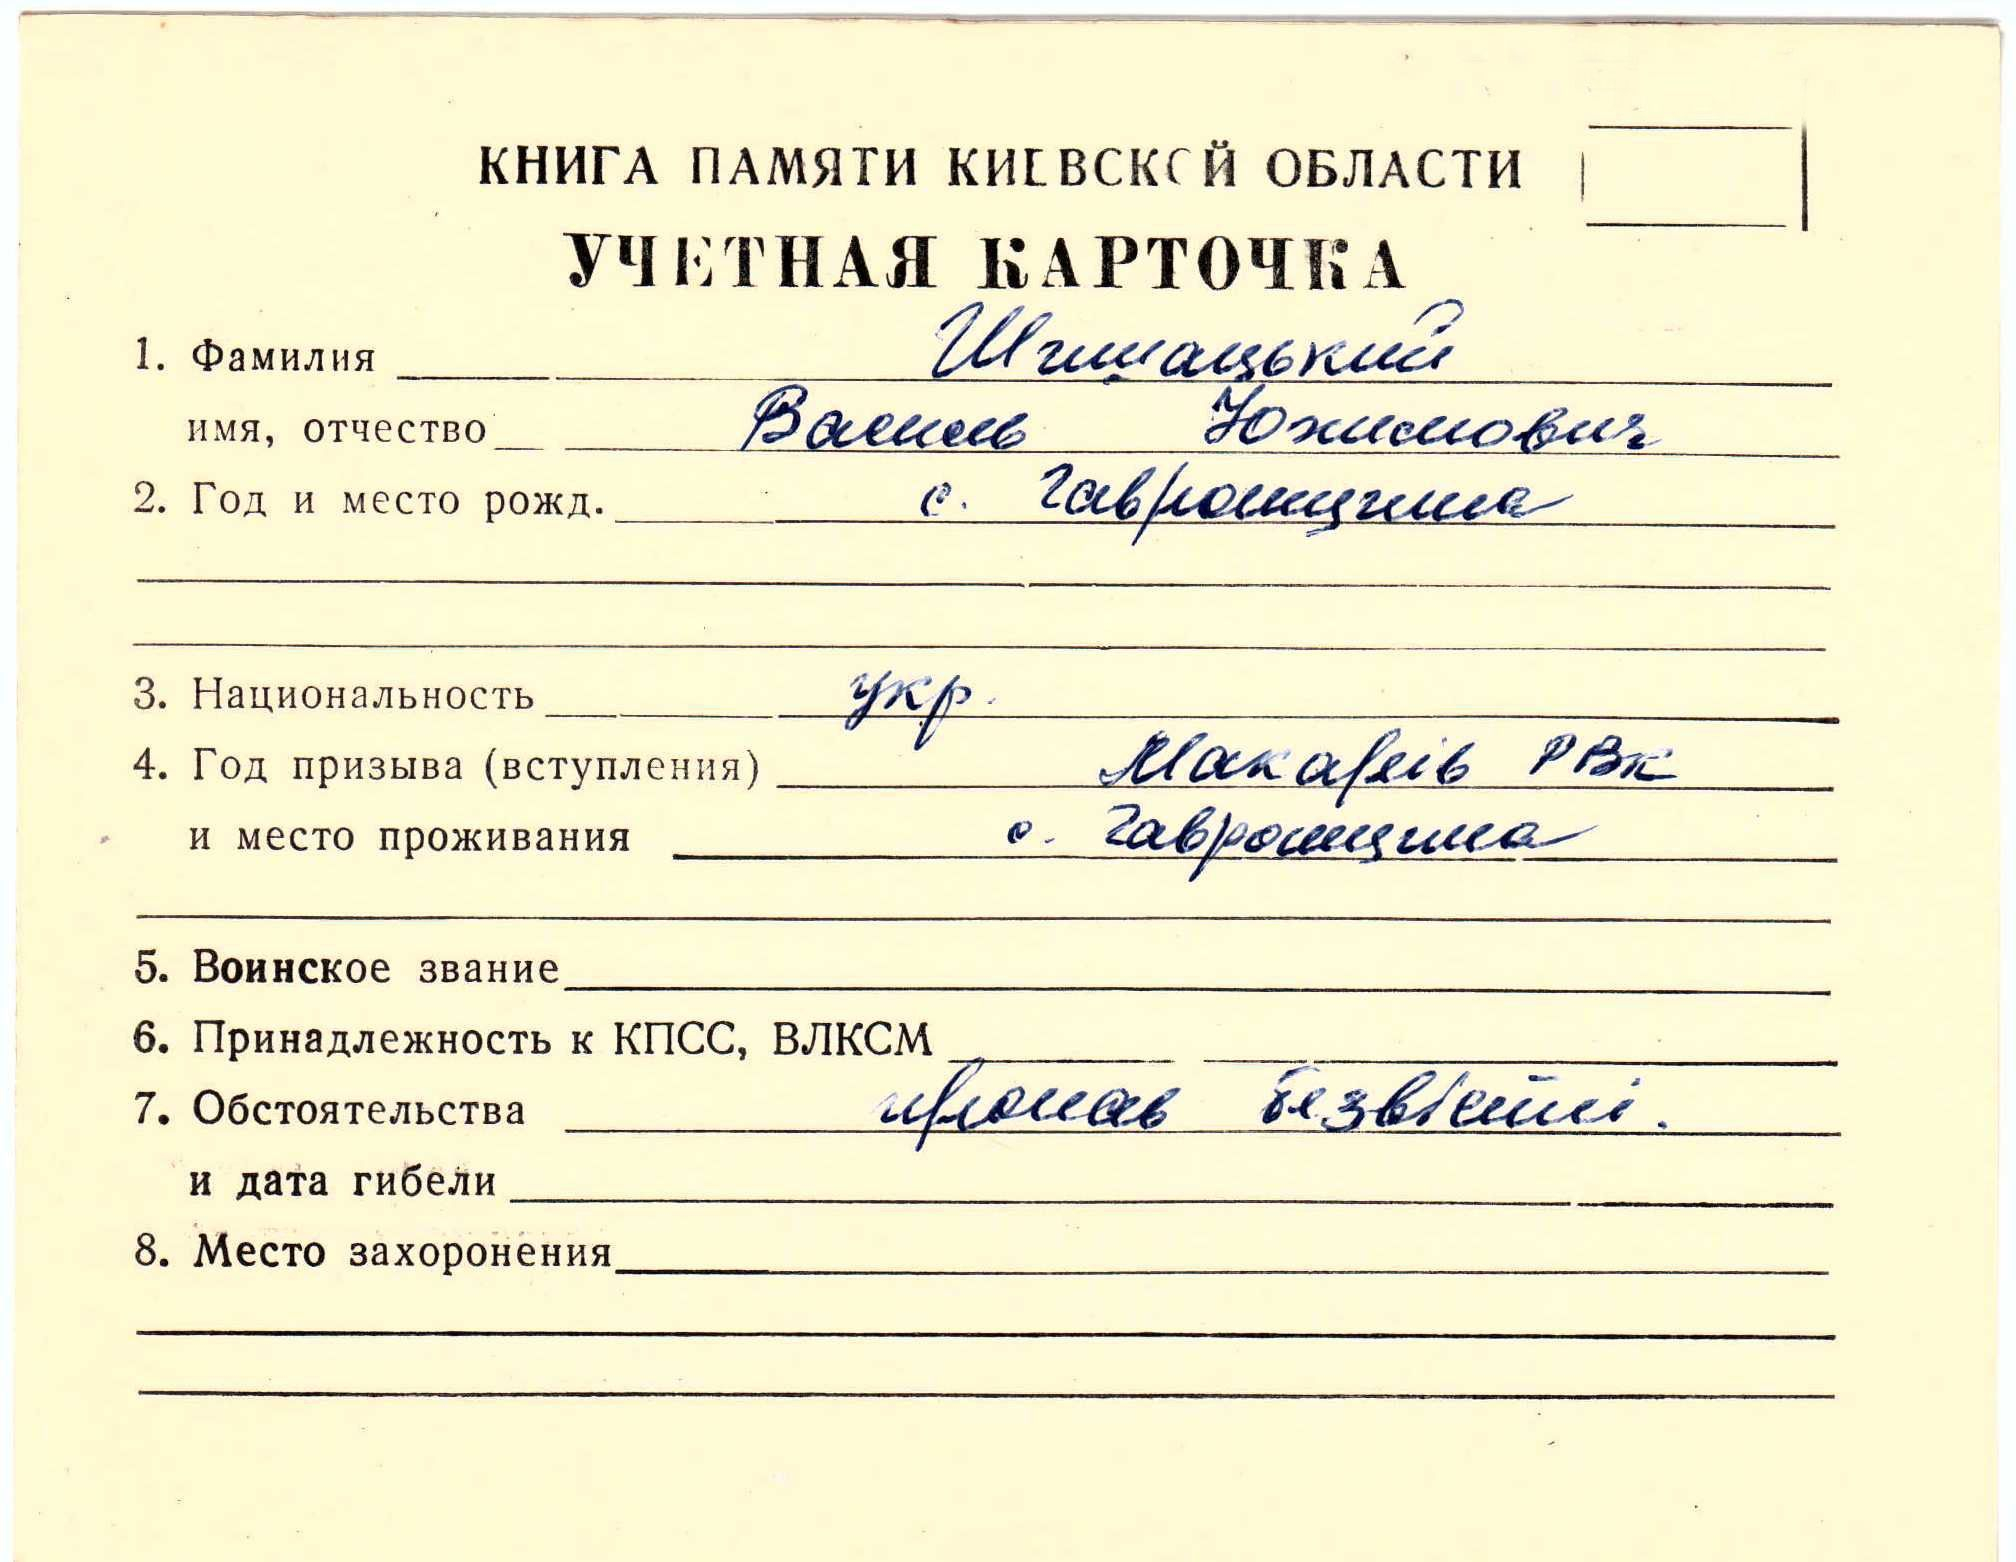 КНИГА ПАМЯТИ КИЕВСКОЙ ОБЛАСТИ
УЧЕТНАЯ КАРТОЧКА
1. Фамилия Шишацький
имя, отчество Василь Юхимович
2. Год и место рожд. с. Гавронщина
3. Национальность укр.
4. Год призыва (вступления) Макарів РВК
и место проживания с. Гавронщина
5. Воинское звание
6. Принадлежность к КПСС, ВЛКСМ
7. Обстоятельства пропав безвісті.
и дата гибели
8. Место захоронения